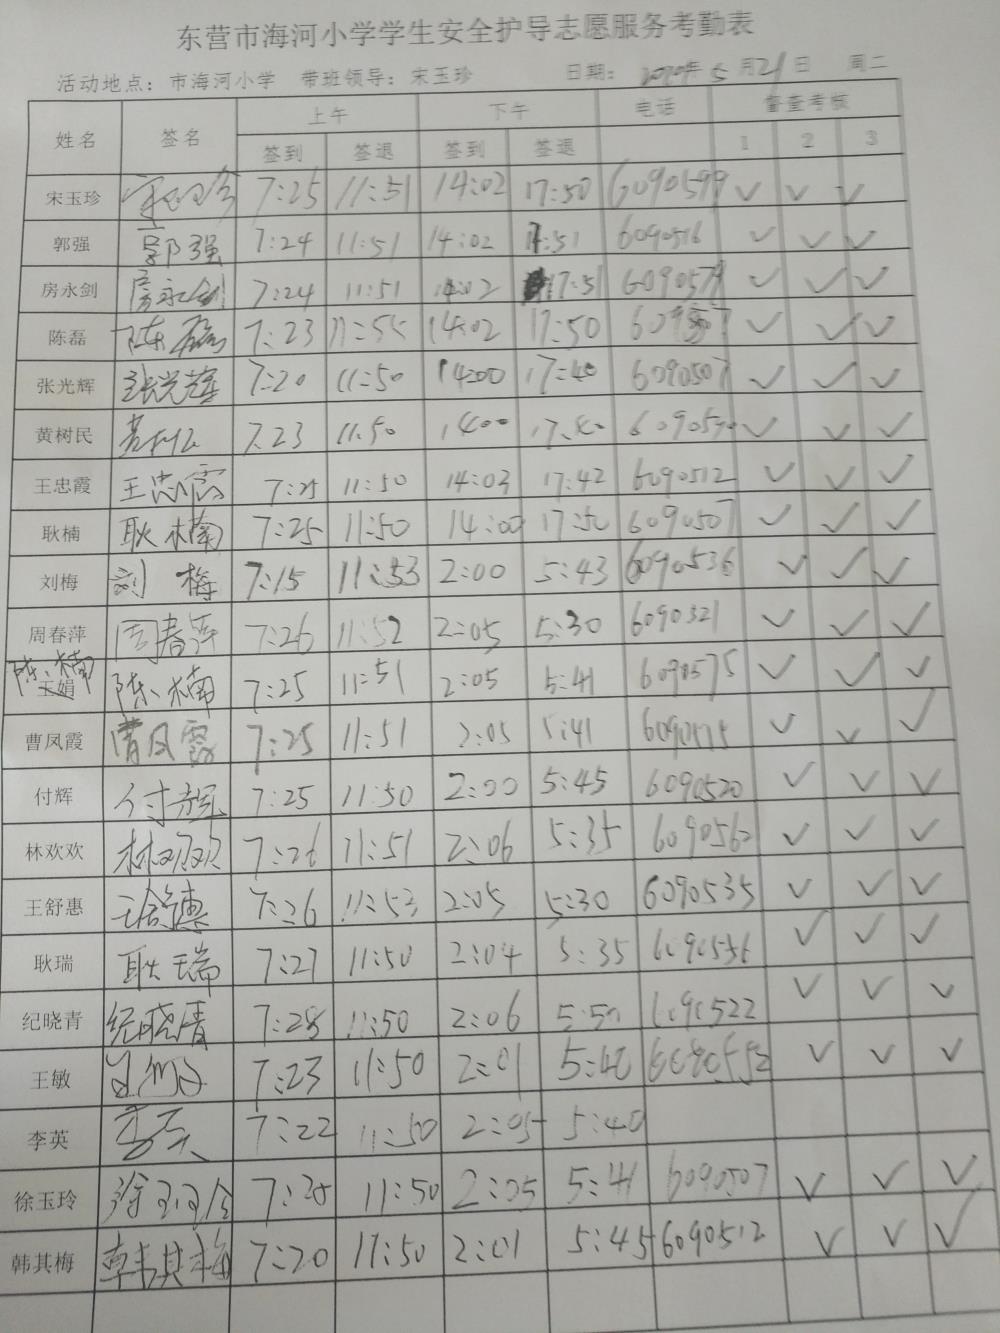 东营市海河小学学生安全护导志愿服务考勤表
活动地点：市海河小学 带班领导：宋玉珍 日期： 5月21日 周二
姓名 签名 上午 下午 电话 督查考核
签到 签退 签到 签退 1 2 3
宋玉珍 宋玉珍 7:25 11:51 14:02 17:50 6090599 ✓ ✓ ✓
郭强 郭强 7:24 11:51 14:02 17:51 6090516 ✓ ✓ ✓
房永剑 房永剑 7:24 11:51 14:02 17:51 6090579 ✓ ✓ ✓
陈磊 陈磊 7:23 14:02 17:50 ✓ ✓ ✓
张光辉 张光辉 7:20 11:50 14:00 17:40 6090507 ✓ ✓ ✓
黄树民 黄树民 7.23 11.50 1400 17.40 ✓ ✓ ✓
王忠霞 王忠霞 7:25 11:50 14:03 17:42 6090512 ✓ ✓ ✓
耿楠 耿楠 7:25 11:50 14:00 17:50 6090507 ✓ ✓ ✓
刘梅 刘梅 7:15 11:53 2:00 5:43 6090536 ✓ ✓ ✓
周春萍 周春萍 7:26 11:52 2:05 5:30 6090521 ✓ ✓ ✓
陈楠
王娟 陈楠 7:25 11:51 2:05 5:41 6090575 ✓ ✓ ✓
曹凤霞 曹凤霞 7:25 11:51 2:05 5:41 6090575 ✓ ✓ ✓
付辉 付辉 7:25 11:50 2:00 5:45 6090520 ✓ ✓ ✓
林欢欢 林欢欢 7:26 11:51 2:06 5:35 6090562 ✓ ✓ ✓
王舒惠 王舒惠 7:26 11:53 2:05 5:30 6090535 ✓ ✓ ✓
耿瑞 耿瑞 7:27 11:50 2:04 5:35 6090536 ✓ ✓ ✓
纪晓青 纪晓青 7:25 11:50 2:06 5:50 6090522 ✓ ✓ ✓
王敏 7:23 11:50 2:01 5:40 6090552 ✓ ✓ ✓
李英 李英 7:22 11:50 2:05 5:40
徐玉玲 徐玉玲 7:25 11:50 2:05 5:41 6090507 ✓ ✓ ✓
韩其梅 韩其梅 7:20 11:50 2:01 5:45 6090512 ✓ ✓ ✓